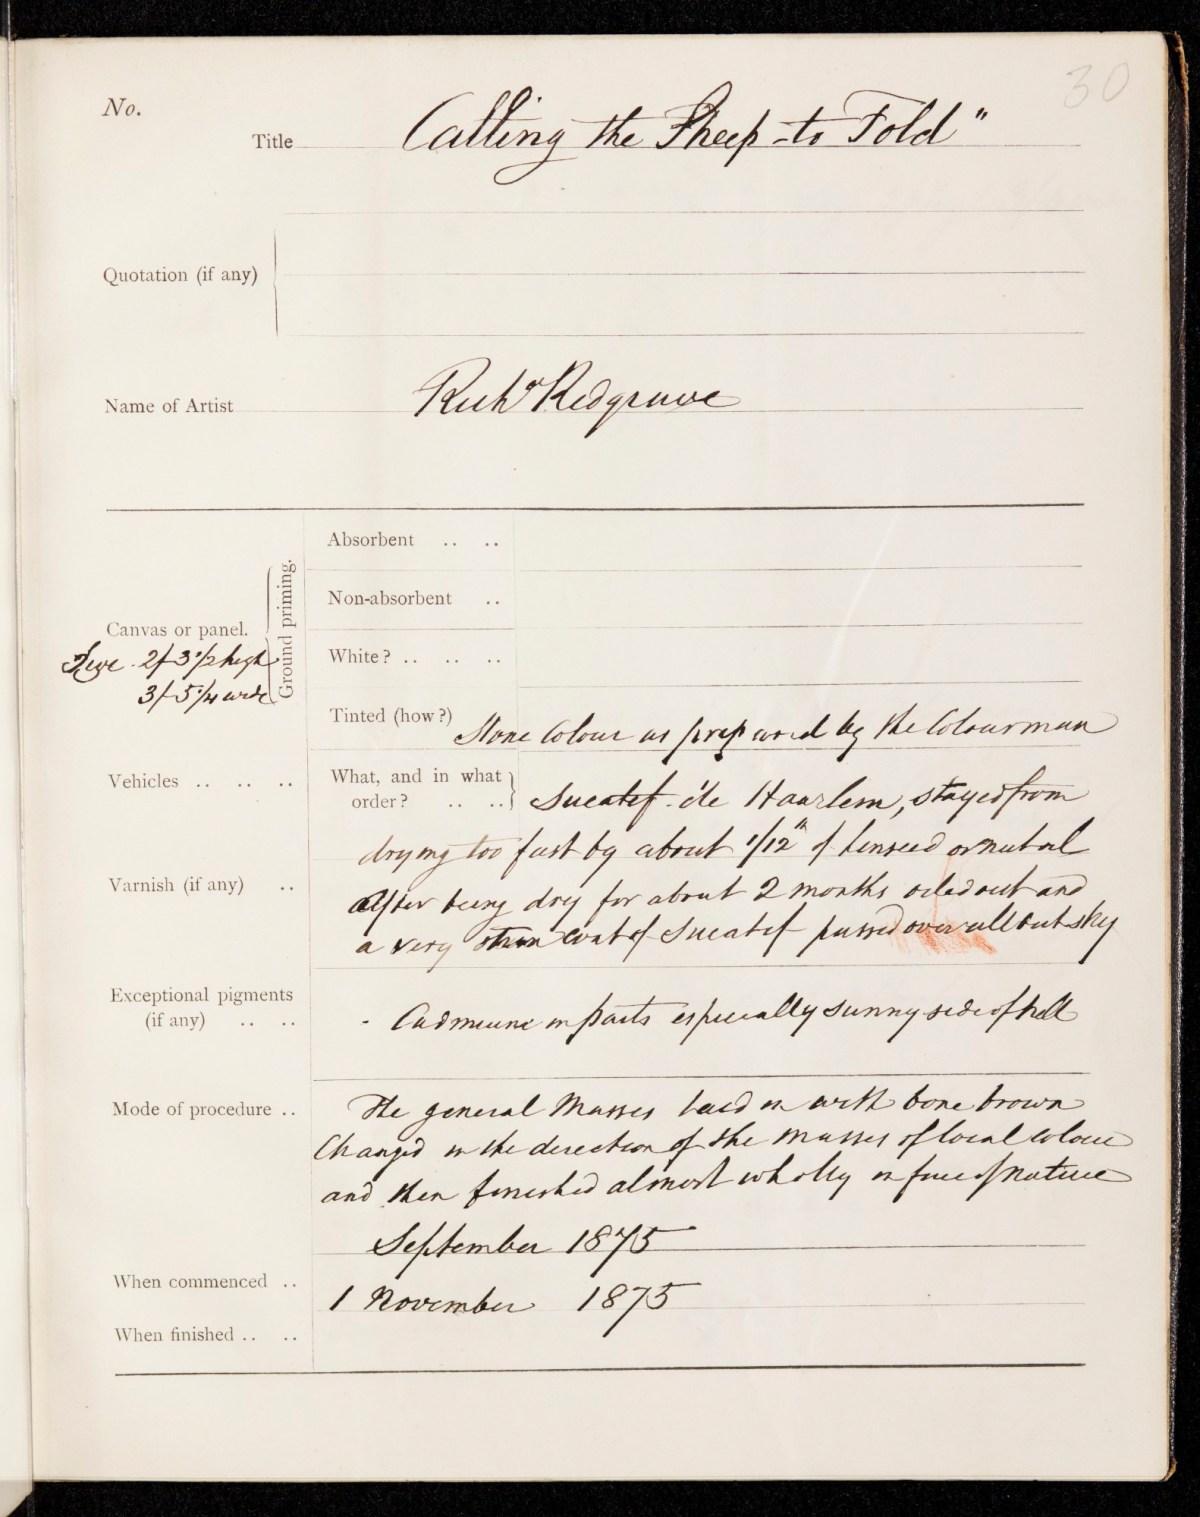 30
No.
Title Calling the Sheep to Fold"
Quotation (if any)
Name of Artist Richd Redgrave
Absorbent .. ..
Non-absorbent ..
Canvas or panel.
Ground priming.
White? .. .. ..
Size 2f 3 1/2 high
3f 5 1/4 wide
Tinted (how?) Stone Colour as prepared by the Colourman
Vehicles .. .. .. What, and in what order? .. .. Sucatif de Haarlem, stayed from
drying too fast by about 1/12th of linseed or nut oil
Varnish (if any) .. After being dry for about 2 months oiled out and
a very thin coat of Sucatif passed over all but sky
Exceptional pigments
(if any) .. .. - Cadmiune in parts especially sunny side of hill
Mode of procedure .. The general Masses laid in with bone brown
Changed in the direction of the masses of local colour
and then finished almost wholly in face of nature
September 1875
When commenced ..
1 November 1875
When finished .. ..